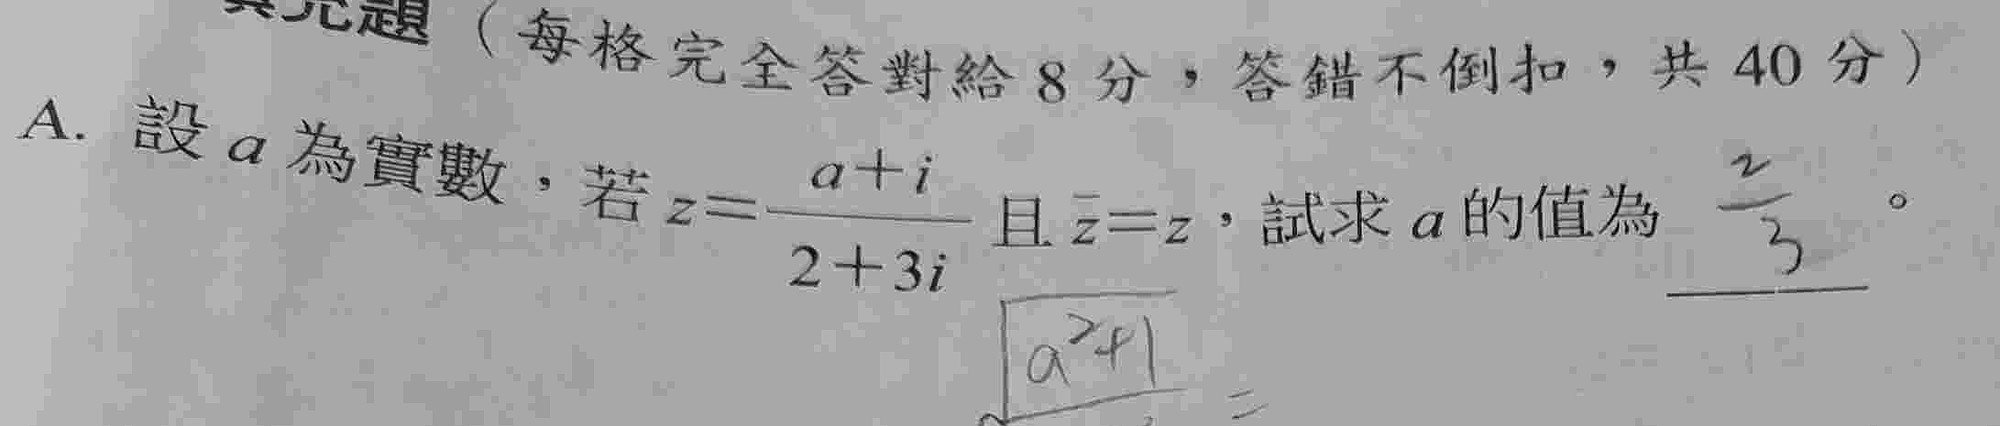 填充題（每格完全答對給 8 分，答錯不倒扣，共 40 分）
A. 設 a 為實數，若 z = \frac{a+i}{2+3i} 且 \bar{z} = z，試求 a 的值為 \frac{2}{3} 。
a²+1
=